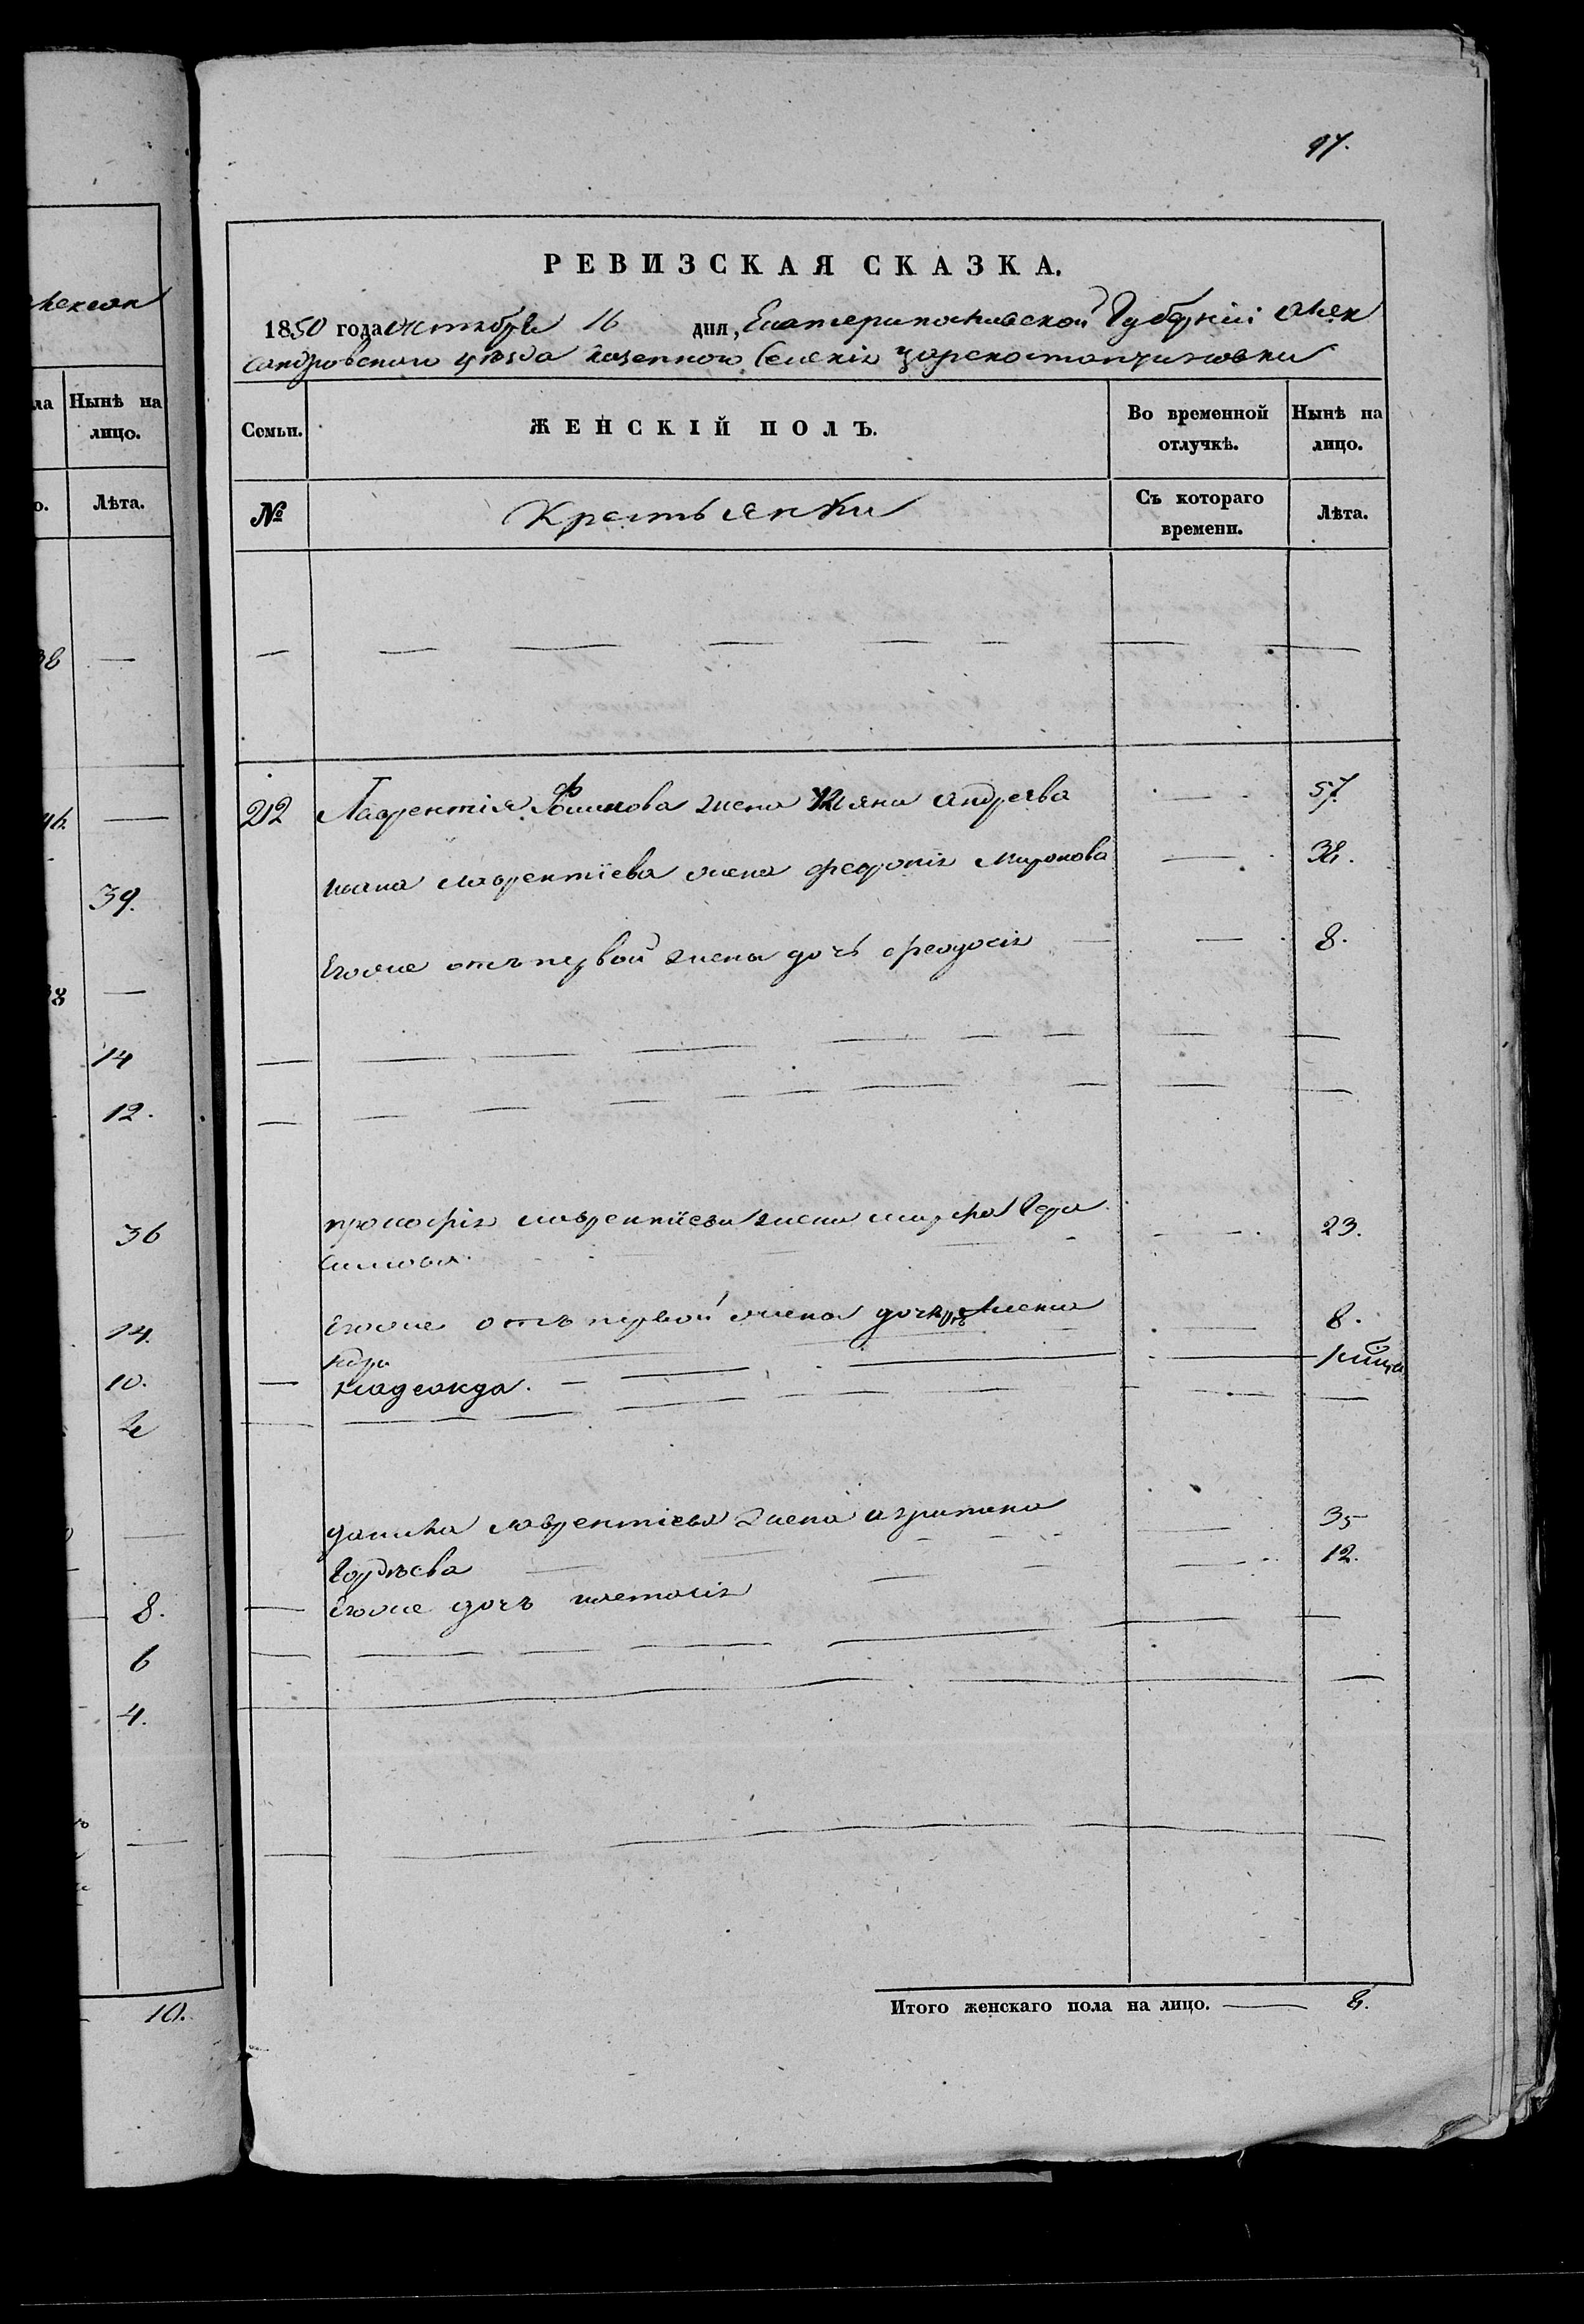 97.
РЕВИЗСКАЯ СКАЗКА.
1850 года октября 16 дня, Екатеринославской Губерніи Алек
сандровскаго уѣзда казеннаго Селенія Царе
Семьи.
ЖЕНСКІЙ ПОЛЪ.
Во временной отлучкѣ.
Нынѣ на лицо.
№
Крестьянки
Съ котораго времени.
Лѣта.
212 Лаврентія жена Ульяна Андреева 57.
Ивана Лаврентіева жена Февронія Миронова
Егоже отъ первой жены дочь Феодосія 8.
Прокофія Лаврентіева жена Марфа Гера
симова 23.
Егоже отъ первой жены дочь 8.
Надежда.
Данила Лаврентіева жена Агрипина 35
Гордѣева
Егоже дочь Настасія 12.
Итого женскаго пола на лицо.
ла
Нынѣ на лицо.
Лѣта.
39.
14
12.
36
14.
10.
8.
6
4.
10.